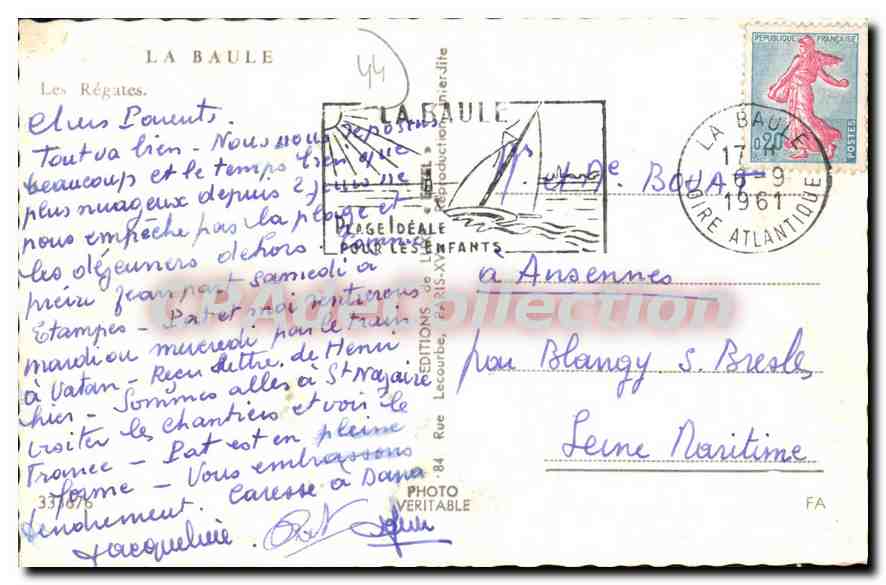 LA BAULE
Les Régates.
44
Chers Parents.
Tout va bien - Nous nous reposons
beaucoup et le temps bien que
plus nuageux depuis 2 jours ne
nous empêche pas la plage et
les déjeuners dehors. Comme
prévu Jean part samedi à
Etampes - Pat et moi rentrerons
mardi ou mercredi par le train
à Vatan - Reçu lettre de Henri
hier - Sommes allés à St Nazaire
visiter les chantiers et voir le
France - Pat est en pleine
forme - Vous embrassons
tendrement. Caresse à Dana
Jacqueline.
PHOTO
VERITABLE
FA
EDITIONS de
84 Rue Lecourbe, PARIS-XV
Reproduction interdite
LA BAULE
PLAGE IDÉALE
POUR LES ENFANTS
REPUBLIQUE FRANÇAISE
0,20
POSTES
LA BAULE
17 H
6-9
1961
LOIRE ATLANTIQUE
à Ansennes
par Blangy s. Bresle
Seine Maritime
CPAdecollection